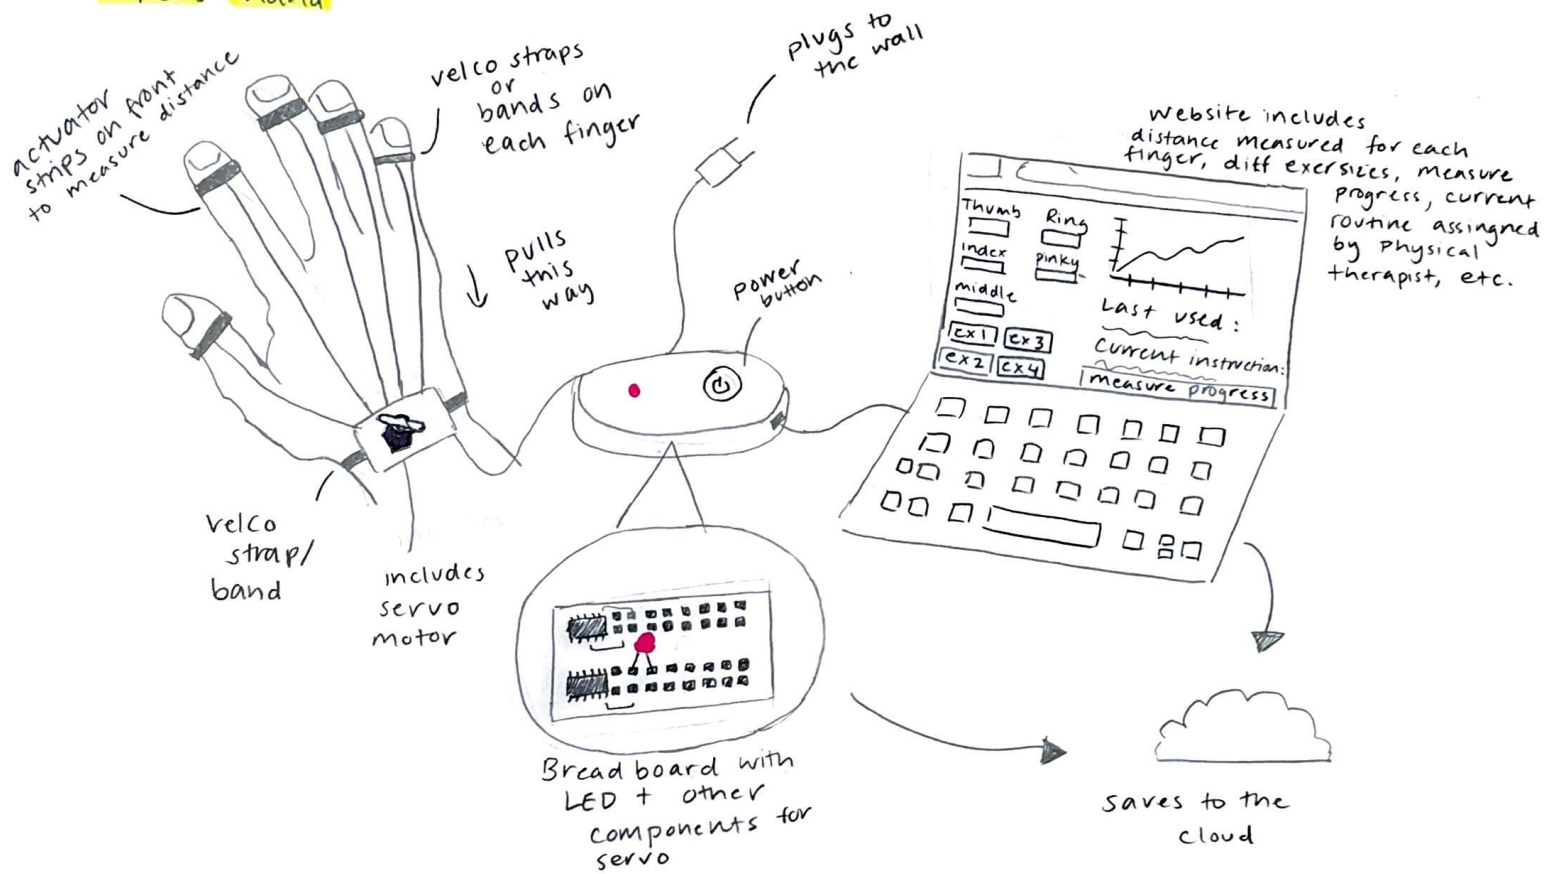 actuator
strips on front
to measure distance
velco straps
or
bands on
each finger
plugs to
the wall
pulls
this
way
power
button
website includes
distance measured for each
finger, diff exersizes, measure
progress, current
routine assingned
by physical
therapist, etc.
Thumb
Ring
index
pinky
middle
ex1
ex3
ex2
ex4
Last used:
Current instruction:
measure progress
velco
strap/
band
includes
servo
motor
Bread board with
LED + other
components for
servo
saves to the
cloud